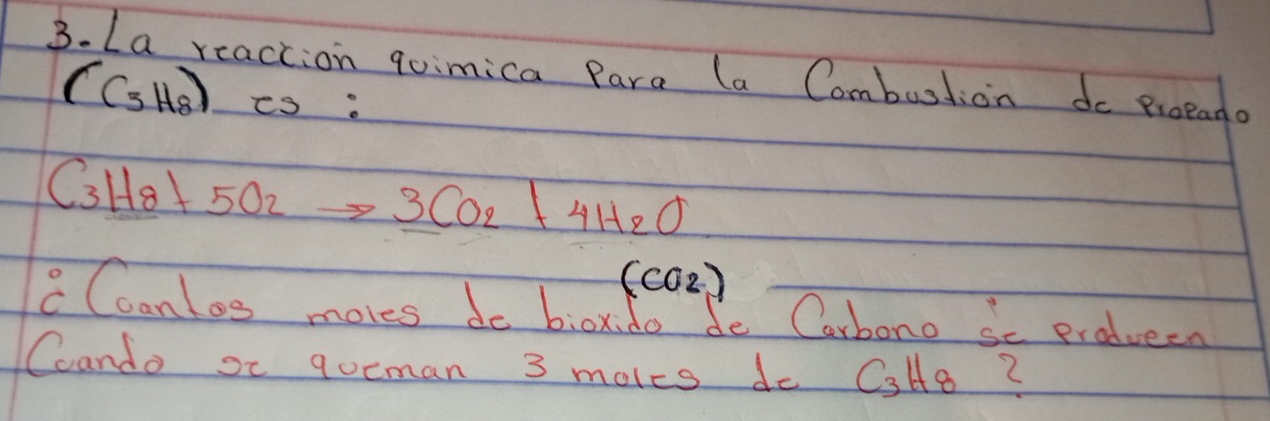 3.-La reaccion quimica Para la Combustion de Propano
(C3H8) es :
C3H8 + 5O2 → 3CO2 + 4H2O
(CO2)
¿Cuantos moles de bioxido de Carbono se producen
Cuando se queman 3 moles de C3H8 ?